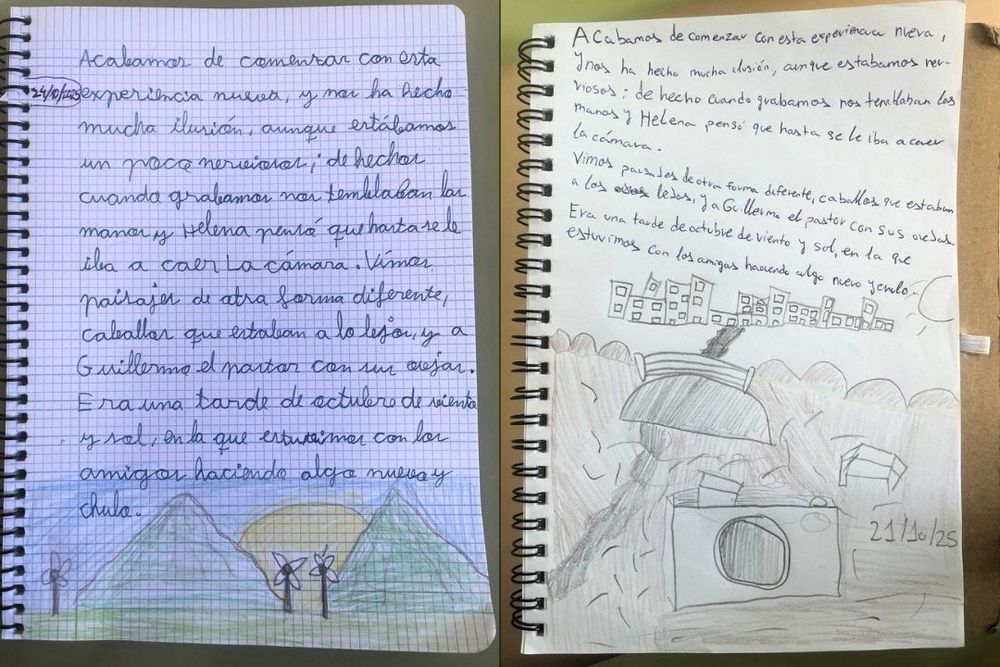 Acabamos de comenzar con esta
24/10/2025
experiencia nueva, y nos ha hecho
mucha ilusión, aunque estábamos
un poco nerviosos; de hechos
cuando grabamos nos temblaban las
manos y Helena pensó que hasta se le
iba a caer La cámara. Vimos
paisajes de otra forma diferente,
caballos que estaban a lo lejos, y a
Guillermo el pastor con sus ovejas.
Era una tarde de octubre de viento
y sol, en la que estuvimos con los
amigos haciendo algo nuevo y
chulo.
Acabamos de comenzar con esta experiencia nueva,
y nos ha hecho mucha ilusión, aunque estabamos ner-
viosos; de hecho cuando grabamos nos temblaban las
manos y Helena pensó que hasta se le iba a caer
la cámara.
Vimos paisajes de otra forma diferente, caballos que estaban
a los lejos, y a Guillermo el pastor con sus ovejas.
Era una tarde de octubre de viento y sol, en la que
estuvimos con los amigos haciendo algo nuevo y chulo.
21/10/25